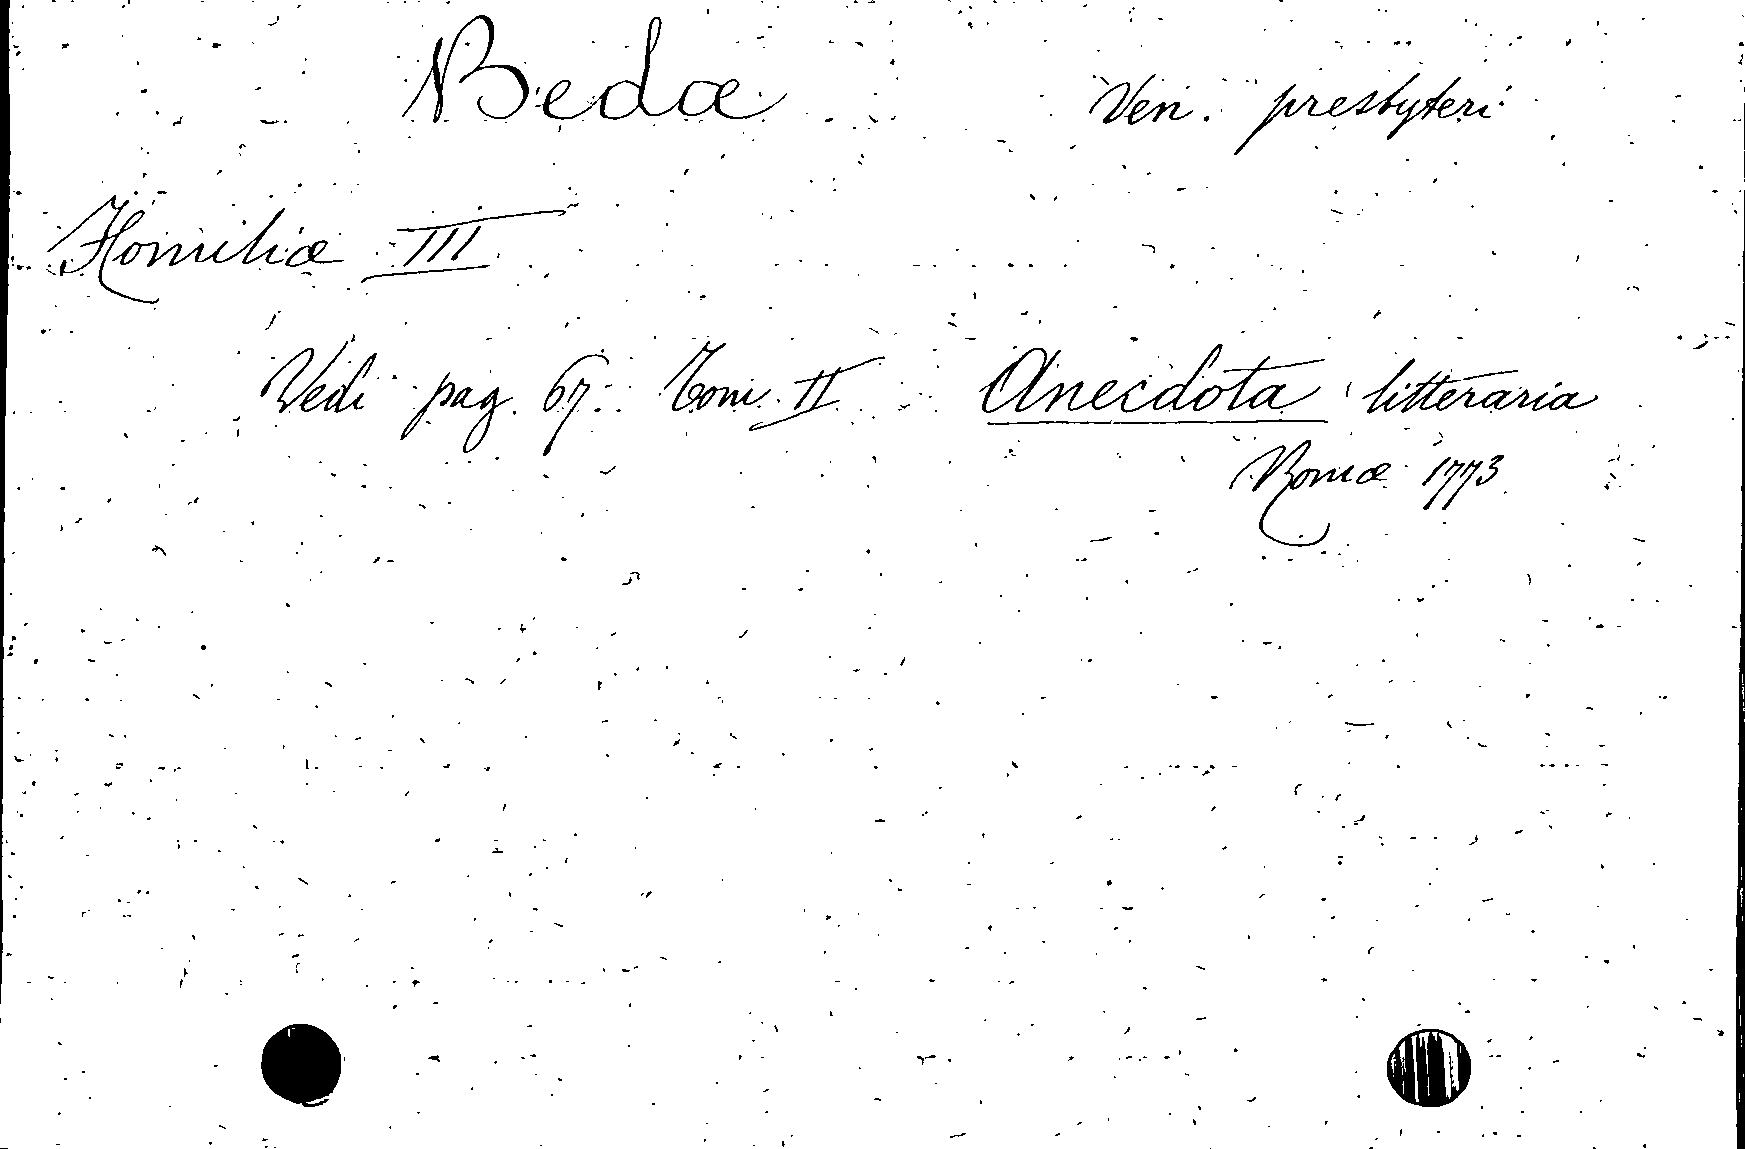 Bedæ Ven. presbyteri
Homiliæ III
Vedi pag. 67. Tom. II Anecdota litteraria
Romæ 1773